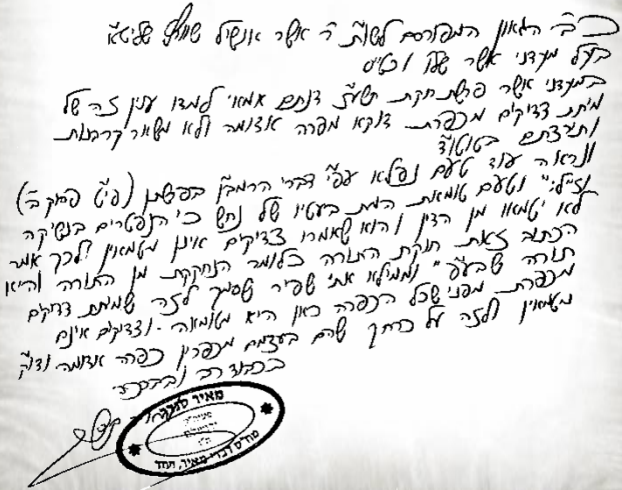 כב' הגאון המפורסם לשו"ת ר' אשר אנשיל שווארץ שליט"א
בעל מעדני אשר ש"ס וכו'
במעדני אשר פרשת חקת תשע"ג דנתם אמאי למדו ענין זה של
מיתת צדיקים מכפרת דוקא מפרה אדומה ולא משאר קרבנות
ותירצתם בטוטו"ד
ונראה עוד טעם נפלא עפ"י דברי הרמב"ן בפרשתן (פי"ט פסוק ב')
וז"ל: "וטעם טומאת המת בעטיו של נחש כי הנפטרים בנשיקה
לא יטמאו מן הדין והוא שאמרו צדיקים אינן מטמאין ולכך אמר
הכתוב זאת חוקת התורה כלומר הנחקקת מן התורה והיא
תורה שבע"פ" וממילא אתי שפיר שסמך לזה שמיתת צדיקים
מכפרת. מפני שכל הכפרה כאן היא מטומאה. וצדיקים אינם
מטמאין ולזה על כרחך שהם בעצמם מכפרין כפרה אדומה ודו"ק
בכבוד רב ובברכה
מאיר
ירושלים
מח"ס דברי מאיר, ועוד